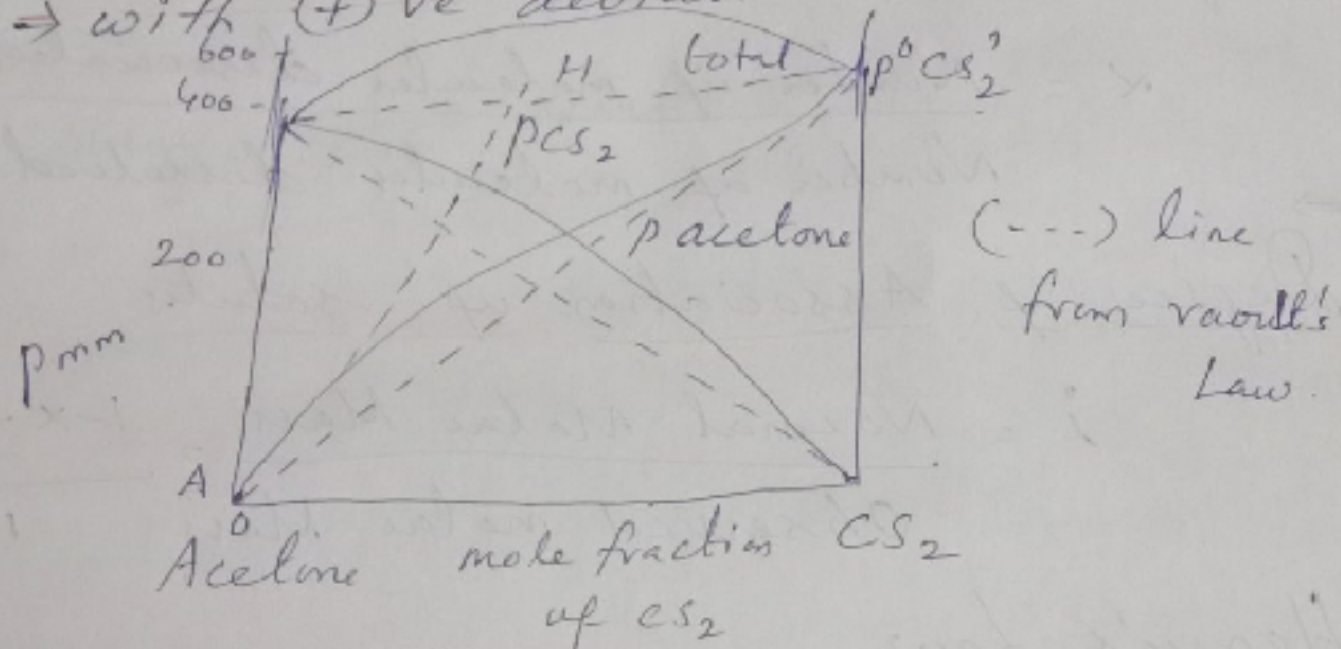 ⇒ with (+) ve
600
400
H
total
p°CS2
PCS2
200
p acetone
(---) line
from raoult's
Law.
pmm
A
0
Acetone
mole fraction
of cs2
CS2